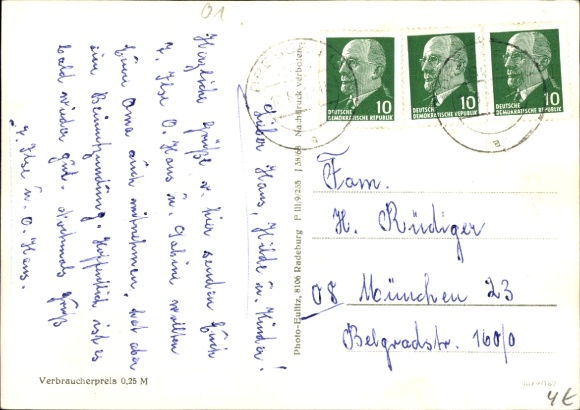 01
Lieber Hans, Hilde u. Kinder!
Herzliche Grüße v. hier senden Euch
T. Ilse O. Hans u. Sabine wollten
Eure Oma auch mitnehmen, hat aber
eine Beinentzündung. Hoffentlich ist es
bald wieder gut. Nochmals Gruß
T. Ilse u. O. Hans.
Verbraucherpreis 0,25 M
Photo-Eulitz, 8106 Radeburg P III/9/235 J 38/68 Nachdruck verboten
10
DEUTSCHE
DEMOKRATISCHE REPUBLIK
10
DEUTSCHE
DEMOKRATISCHE REPUBLIK
10
DEUTSCHE
DEMOKRATISCHE REPUBLIK
Fam.
H. Rüdiger
08 München 23
Belgradstr. 160/0
4€